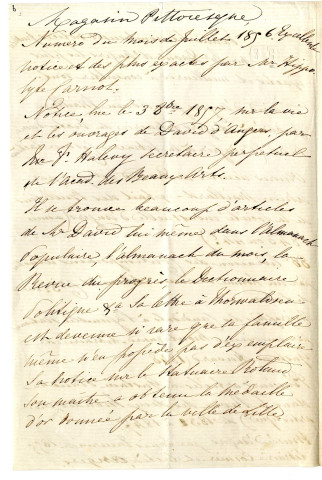 6
Magasin Pittoresque
Numéro du mois de Juillet 1856 Excellente
notice et des plus exactes par Mr Hippo
lyte Carnot.
Notice, lue le 3 8bre 1857 sur la vie
et les ouvrages de David d'Angers, par
Mr F. Halevy Secretaire perpetuel
de l'acad. des Beaux Arts.
Il se trouve beaucoup d'articles
de Mr David lui même dans l'Almanach
Populaire l'almanach du mois, la
Revue du progrès, le Dictionnaire
Politique &a Sa lettre à Thorwaldsen
est devenue si rare que la famille
même n'en possède pas d'exemplaire
Sa notice sur le statuaire Roland
son maitre a obtenu la médaille
d'or donnée par la ville de Lille